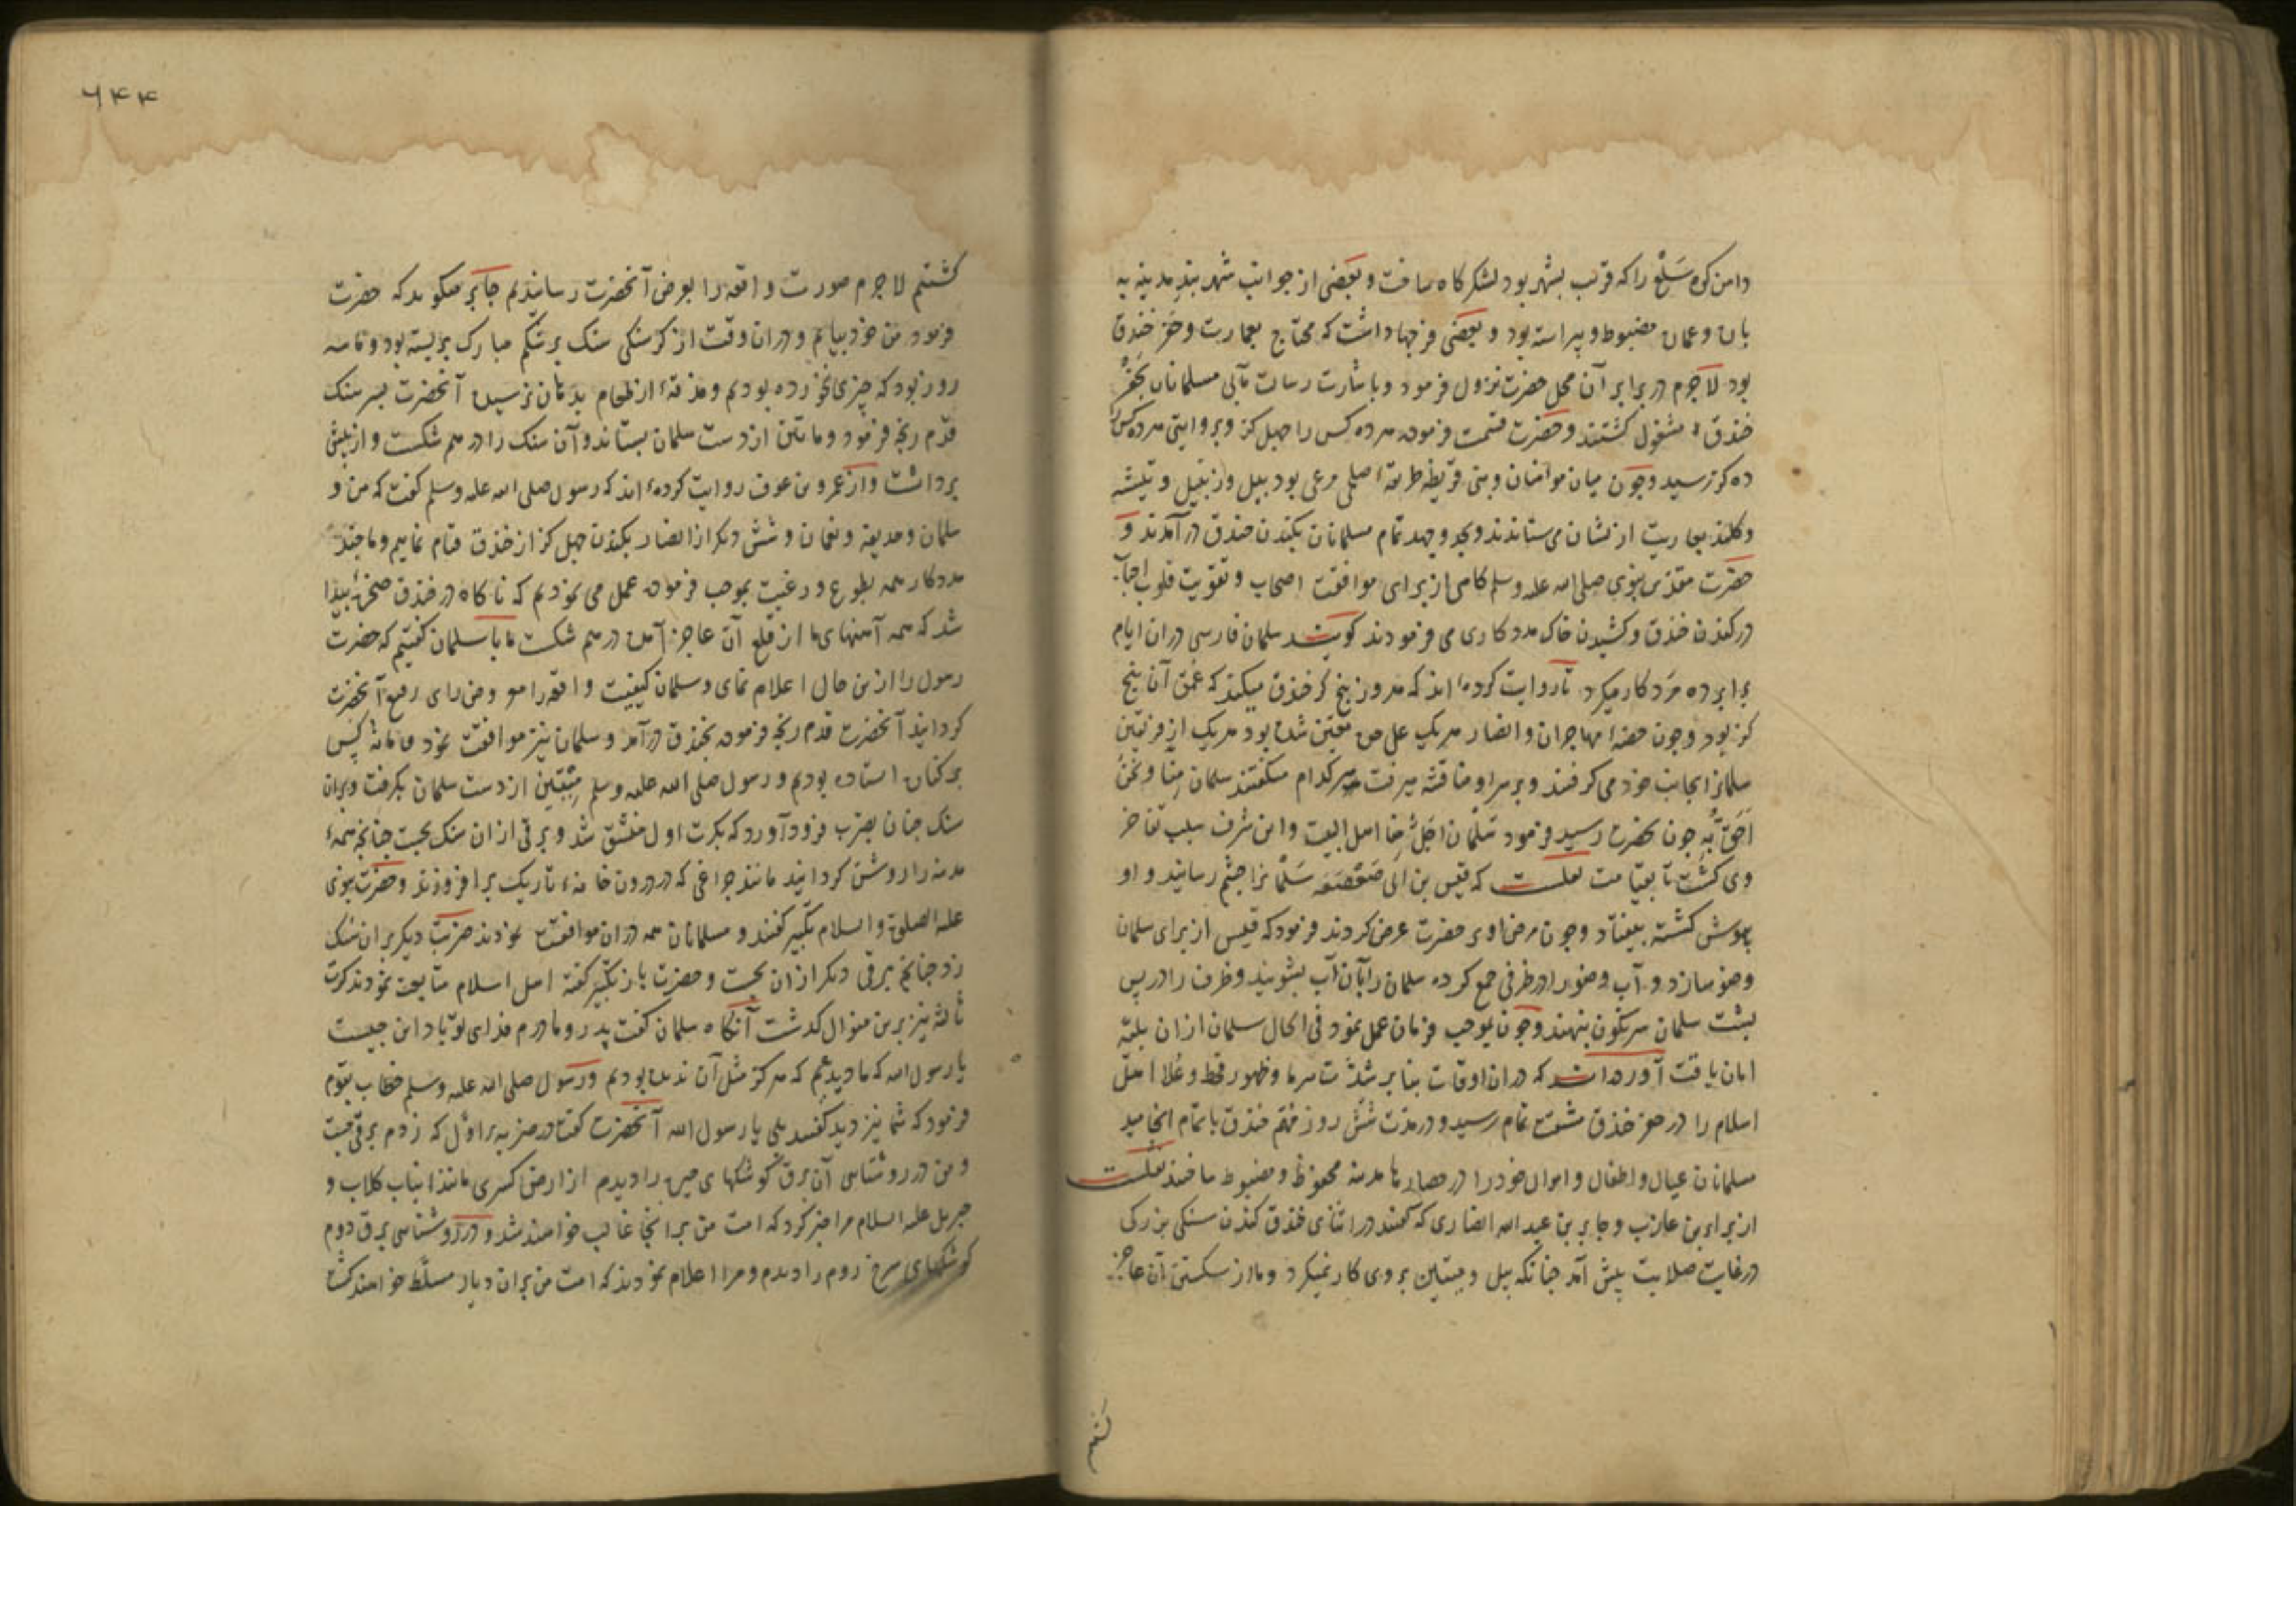 دامن کوه سَلْع را که قریب بشهر بود لشکرکاه ساخت و بعضی از جوانب شهر بند مدینه به
بان و عمان مضبوط و پیراسته بود و بعضی فرجها داشت که محتاج بعمارت و حفر خندق
بود لاجرم در برابر آن محل حضرت نزول فرمود و باشارت رسالت مآبی مسلمانان بحفر
خندق مشغول کشتند و حضرت قسمت فرموده هر ده کس را چهل کز و بروایتی هر ده کس را
ده کز رسید و چون میان مؤمنان و بنی قریظه طریقهٔ اصلی مرعی بود بیل و زنبیل و تیشه
و کلند بعاریت ازیشان می ستاندند و بجد و جهد تمام مسلمانان بکندن خندق درآمدند و
حضرت مقدّس نبوی صلی الله علیه وسلم کاهی از برای موافقت اصحاب و تقویت قلوب احباب
در کندن خندق و کشیدن خاک مددکاری می فرمودند کویند سلمان فارسی در ان ایام
برابر ده مرد کار میکرد تا روایت کرده‌اند که هر روز پنج کز خندق میکند که عُمق آن پنج
کز بود و چون حصهٔ مهاجران و انصار هر یک علی حده معیّن شده بود هر یک از فریقین
سلمانرا بجانب خود می کرفتند و بر سر او مناقشه میرفت هر کدام میکفتند سلمان مِنّا و نَحْنُ
اَحَقُّ بِهِ چون بحضرت رسید فرمود سَلْمان رَجُلٌ مِنّا اهل البیت و این شرف سبب تفاخر
وی کشت تا بقیامت نقلست که قیس بن ابی صَعْصَعَه سَلْمانرا چشم رسانید و او
بیهوش کشته بیفتاد و چون مرض او بر حضرت عرض کردند فرمود که قیس از برای سلمان
وضو سازد و آب وضو را در ظرفی جمع کرده سلمان را بآن آب بشویند و ظرف را در پس
پشت سلمان سرنکون بنهند و چون بموجب فرمان عمل نمود فی الحال سلمان ازان بلیّه
امان یافت آورده‌اند که در ان اوقات بنا بر شدّت سرما و ظهور قحط و غلا اهل
اسلام را در حفر خندق مشقت تمام رسید و در مدّت شش روز مهمّ خندق باتمام انجامید
مسلمانان عیال و اطفال و اموال خود را در حصارها مدینه محفوظ و مضبوط ساختند نقلست
از براء بن عازب و جابر بن عبد الله انصاری که کفتند در اثنای خندق کندن سنکی بزرک
در غایت صلابت پیش آمد چنانکه بیل و میتین بر وی کار نمیکرد و ما از شکستن آن عاجز
کشتیم
۶۴۴
کشتیم لاجرم صورت واقعه را بعرض آنحضرت رسانیدیم جابر میکوید که حضرت
فرمود من خود بیایم و در ان وقت از کرسنکی سنک بر شکم مبارک بر بسته بود و ما سه
روز بود که چیزی نخورده بودیم و مذقهٔ از طعام بدهان نرسیده آنحضرت بسر سنک
قدم رنجه فرمود و مائتین از دست سلمان بستاند و آن سنک را در هم شکست و از پیش
برداشت و از عمرو بن عوف روایت کرده‌اند که رسول صلی الله علیه وسلم کفت که من و
سلمان و حذیفه و نعمان و شش دیکر از انصار بکندن چهل کز از خندق قیام نماییم و ما چند
مددکار همه بطوع و رغبت بموجب فرموده عمل می نمودیم که ناکاه در خندق صخرهٔ پیدا
شد که همه آهنهای ما از قلع آن عاجز آمده در هم شکست ما با سلمان کفتیم که حضرت
رسول را ازین حال اعلام نمای و سلمان کیفیت واقعه را معروض رای رفیع آنحضرت
کردانید آنحضرت قدم رنجه فرموده بخندق درآمد و سلمان نیز موافقت نمود و ما نه کس
بر کنار استاده بودیم و رسول صلی الله علیه وسلم میتین از دست سلمان بکرفت و بران
سنک چنان بضرب فرود آورد که بکرت اول منشق شد و برقی ازان سنک بجست چنانچه همهٔ
مدینه را روشن کردانید مانند چراغی که در درون خانهٔ تاریک برافروزند و حضرت نبوی
علیه الصلوة والسلام تکبیر کفتند و مسلمانان همه در ان موافقت نمودند ضربت دیکر بر ان سنک
زد چنانچه برقی دیکر ازان بجست و حضرت باز تکبیر کفته اهل اسلام متابعت نمودند کرت
ثالثه نیز برین منوال کذشت آنکاه سلمان کفت پدر و مادرم فدای تو باد این چیست
یا رسول الله که ما دیدیم که هرکز مثل آن ندیده بودیم و رسول صلی الله علیه وسلم خطاب بقوم
فرمود که شما نیز دیدید کفتند بلی یا رسول الله آنحضرت کفت در ضربهٔ اوّل که زدم برقی جست
و من در روشنایی آن برق کوشکهای حیره را دیدم از ارض کسری مانند انیاب کلاب و
جبریل علیه السلام مرا خبر کرد که امت من بر انجا غالب خواهند شد و در روشنایی برق دوم
کوشکهای سرخ روم را دیدم و مرا اعلام نمودند که امت من بران دیار مسلّط خواهند کشت